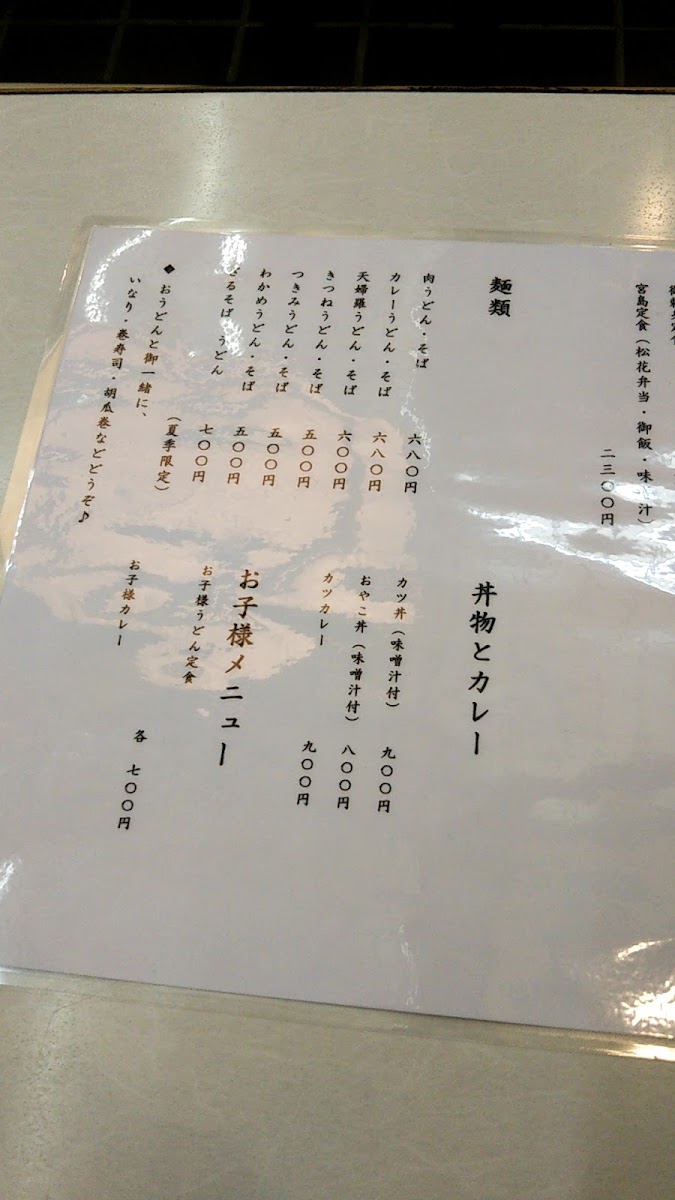 宮島定食（松花弁当・御飯・味
汁）
二三〇〇円
麺類
肉うどん・そば 六八〇円
カレーうどん・そば 六八〇円
天婦羅うどん・そば 六〇〇円
きつねうどん・そば 五〇〇円
つきみうどん・そば 五〇〇円
わかめうどん・そば 五〇〇円
ざるそば・うどん 七〇〇円
（夏季限定）
◆おうどんと御一緒に、
いなり・巻寿司・胡瓜巻などどうぞ♪
丼物とカレー
カツ丼（味噌汁付） 九〇〇円
おやこ丼（味噌汁付） 八〇〇円
カツカレー 九〇〇円
お子様メニュー
お子様うどん定食
お子様カレー
各 七〇〇円